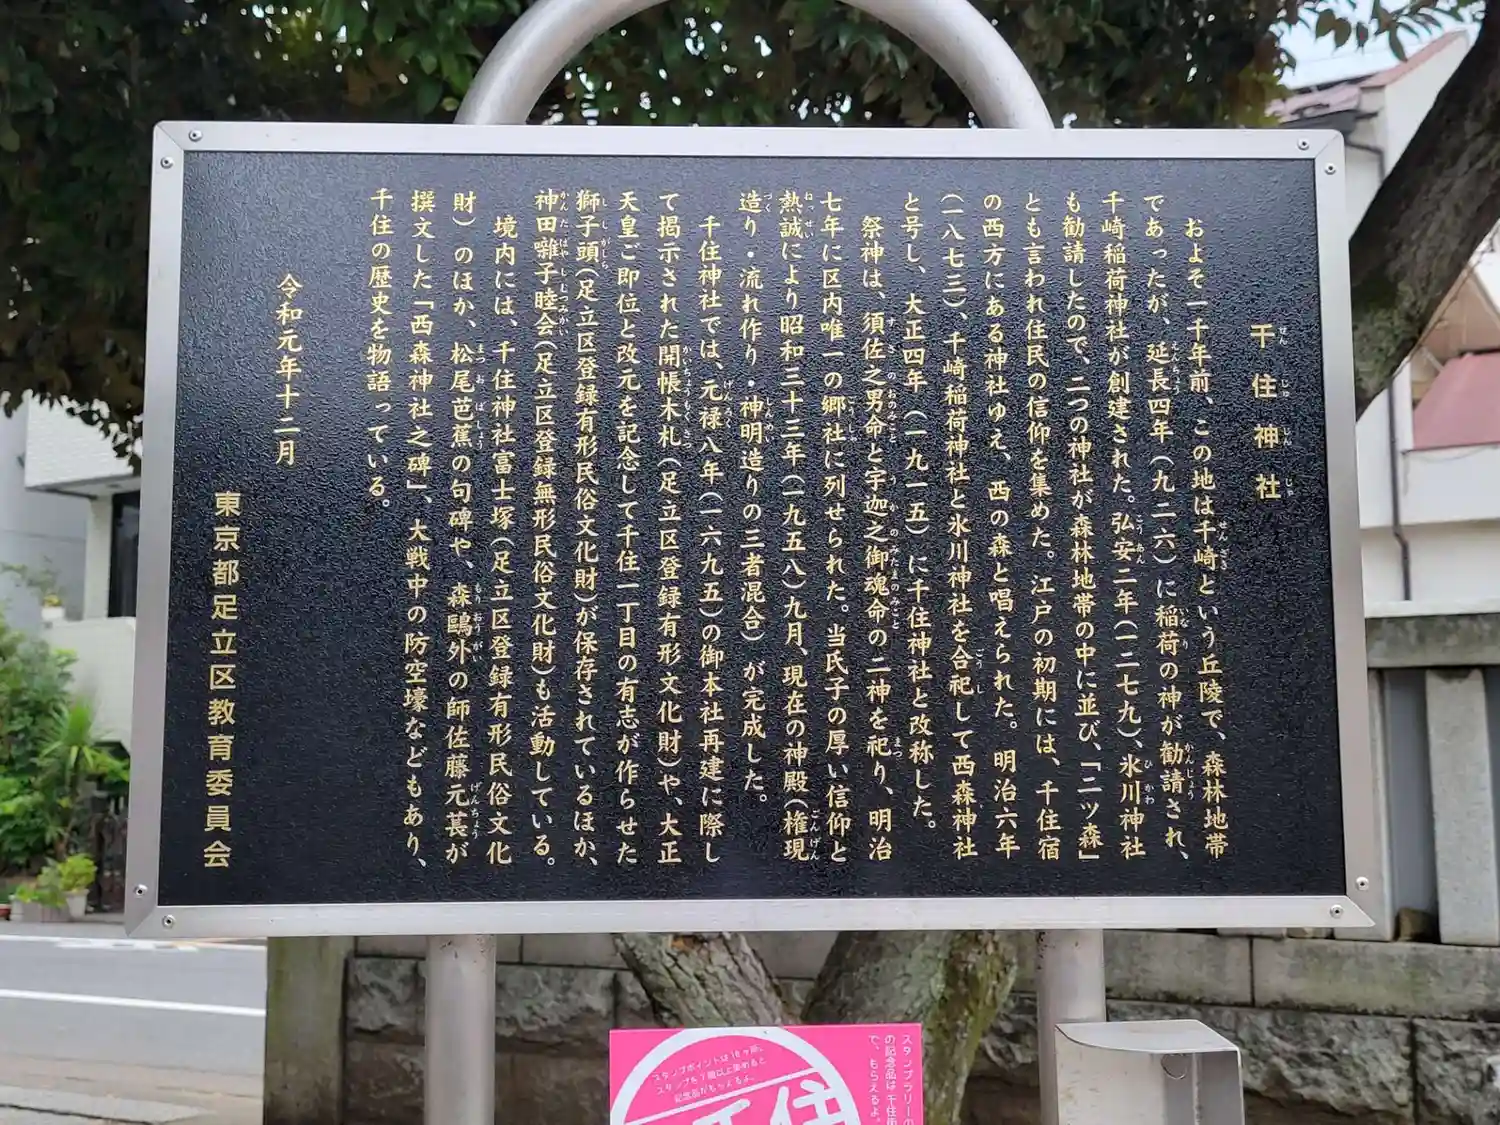 千住神社
およそ一千年前、この地は千崎という丘陵で、森林地帯
であったが、延長四年（九二六）に稲荷の神が勧請され、
千崎稲荷神社が創建された。弘安二年（一二七九）、氷川神社
も勧請したので、二つの神社が森林地帯の中に並び、「二ツ森」
とも言われ住民の信仰を集めた。江戸の初期には、千住宿
の西方にある神社ゆえ、西の森と唱えられた。明治六年
（一八七三）、千崎稲荷神社と氷川神社を合祀して西森神社
と号し、大正四年（一九一五）に千住神社と改称した。
祭神は、須佐之男命と宇迦之御魂命の二神を祀り、明治
七年に区内唯一の郷社に列せられた。当氏子の厚い信仰と
熱誠により昭和三十三年（一九五八）九月、現在の神殿（権現
造り・流れ作り・神明造りの三者混合）が完成した。
千住神社では、元禄八年（一六九五）の御本社再建に際し
て掲示された開帳木札（足立区登録有形文化財）や、大正
天皇ご即位と改元を記念して千住一丁目の有志が作らせた
獅子頭（足立区登録有形民俗文化財）が保存されているほか、
神田囃子睦会（足立区登録無形民俗文化財）も活動している。
境内には、千住神社富士塚（足立区登録有形民俗文化
財）のほか、松尾芭蕉の句碑や、森鷗外の師佐藤元萇が
撰文した「西森神社之碑」、大戦中の防空壕などもあり、
千住の歴史を物語っている。
令和元年十二月
東京都足立区教育委員会
スタンプラリーの
の記念品は千住
で、もらえるよ。
千住